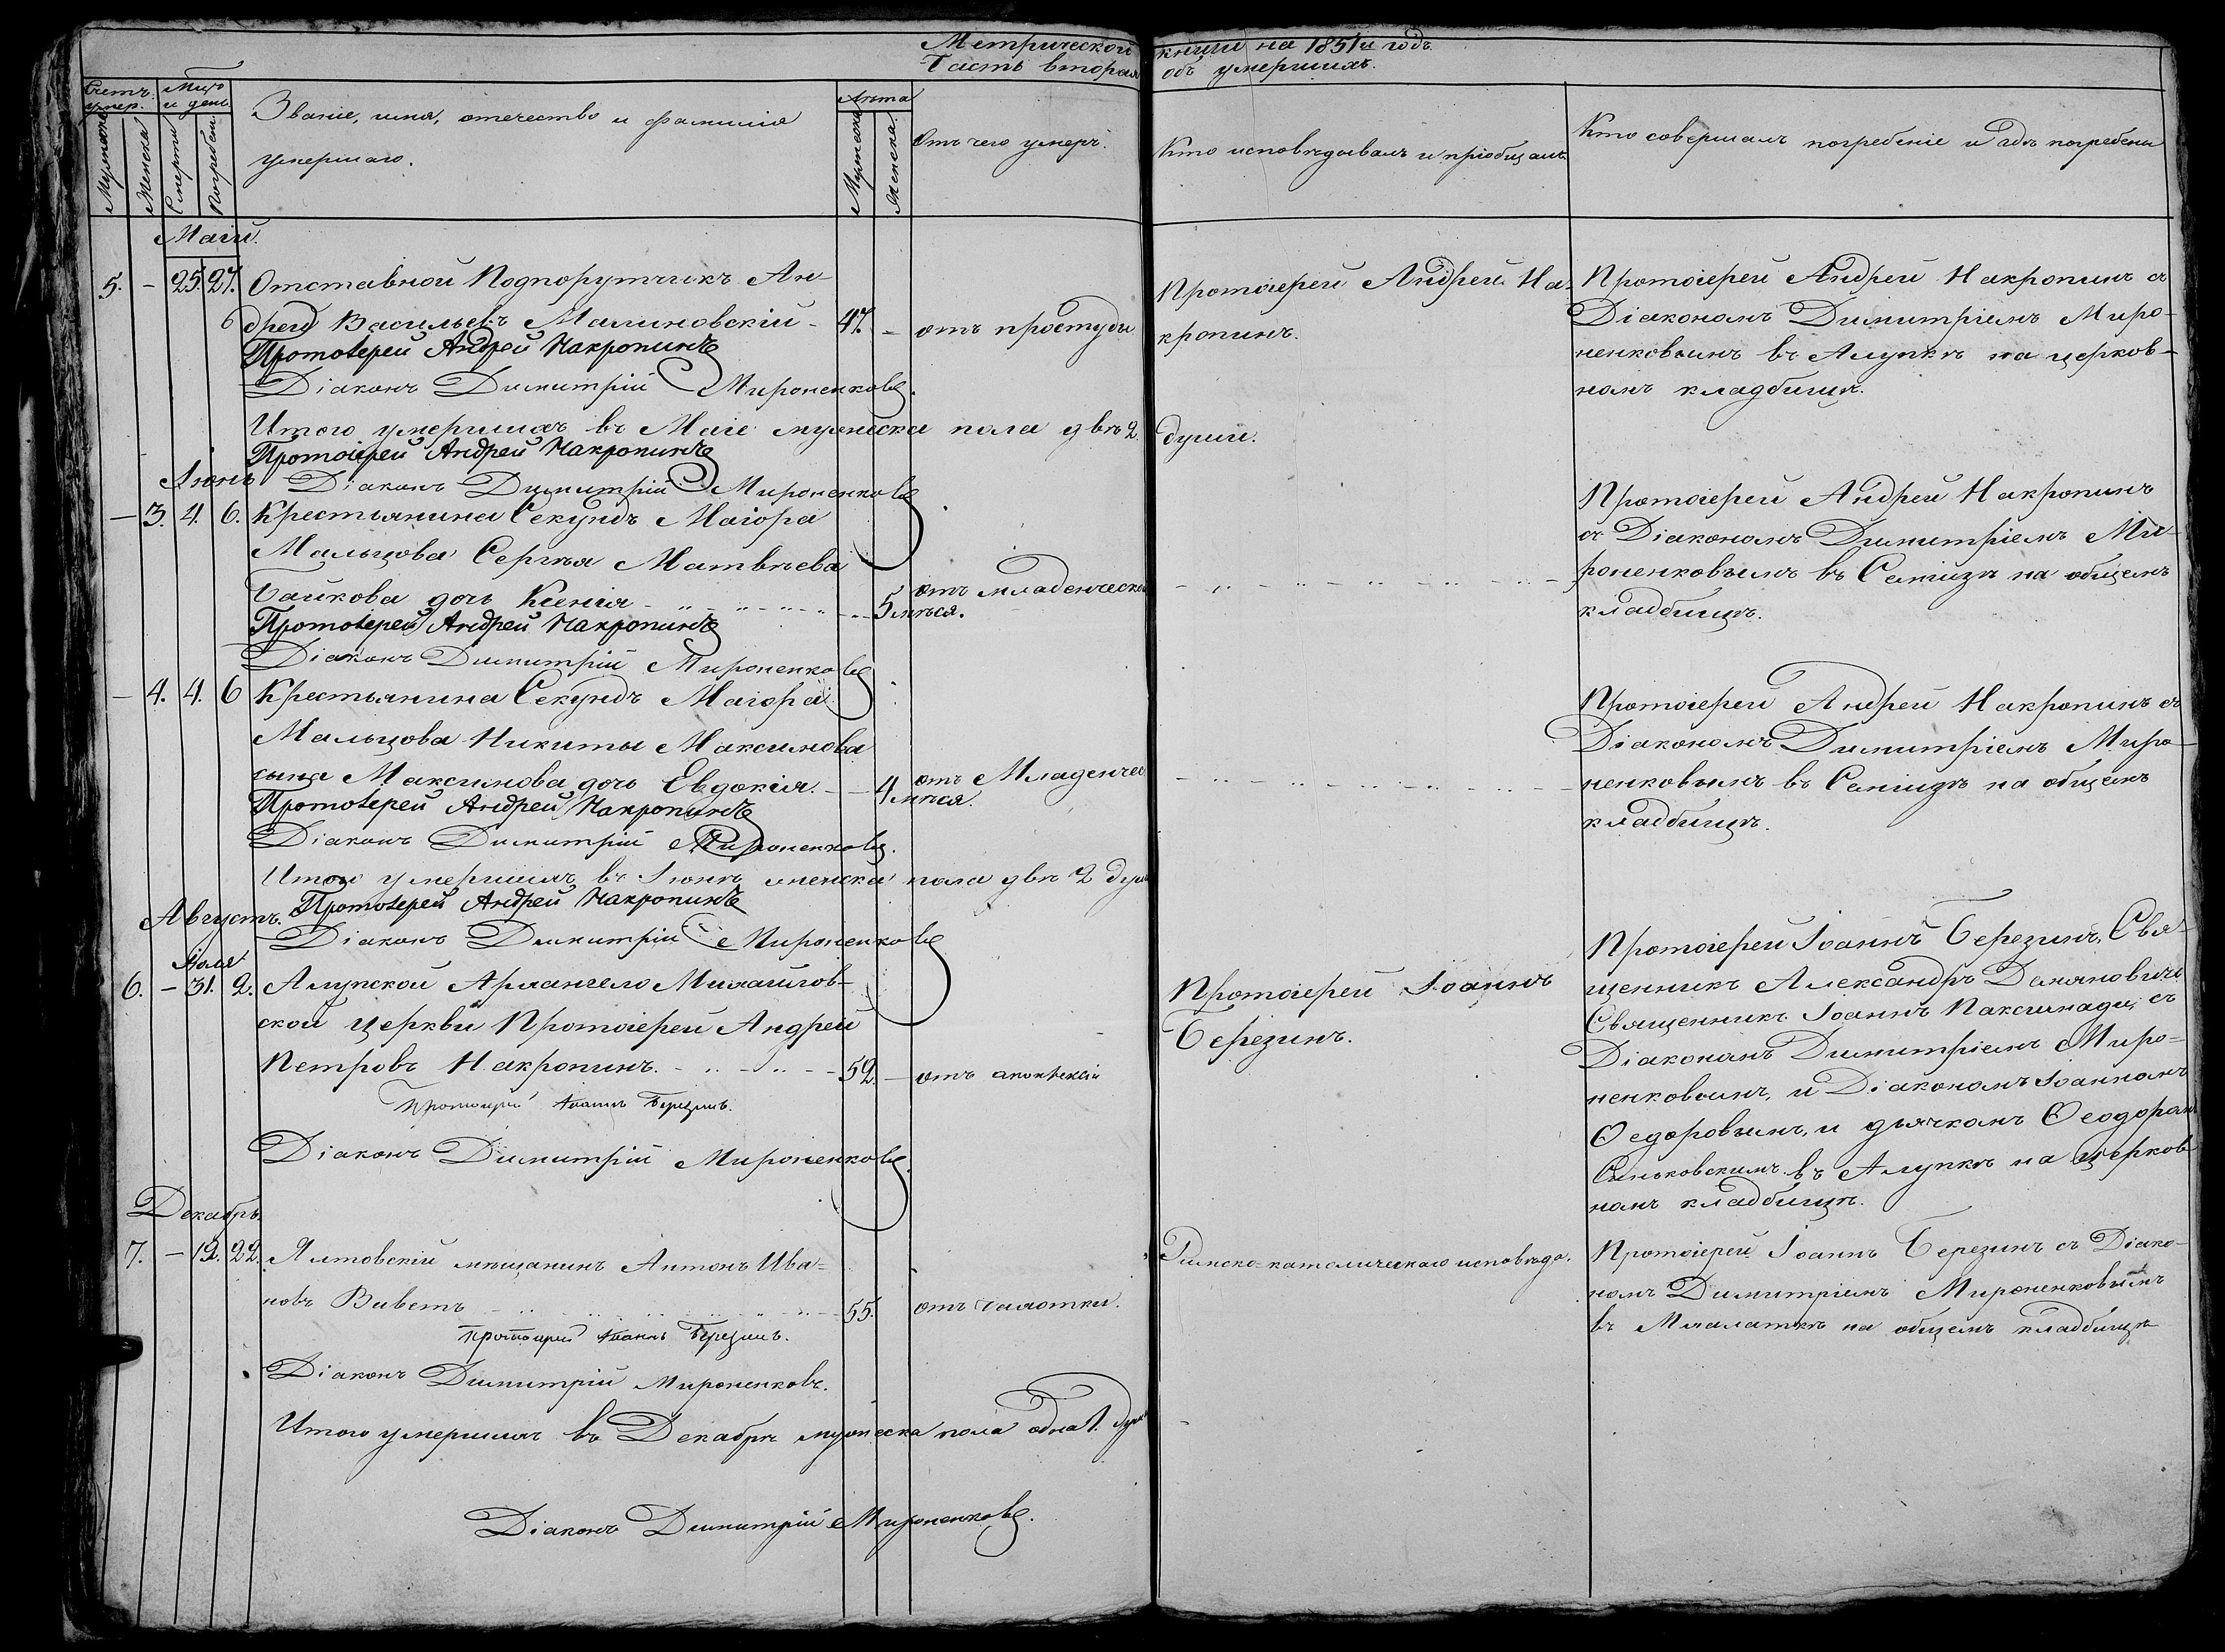 Метрической книги на 1851й годъ
Часть вторая объ умершихъ.
Счетъ умер.
Мужеска
Женска
Мцъ и день
Смерти
Погребен.
Званіе, имя, отечество и фамилія
умершаго.
Лѣта
Мужеска
Женска
Отъ чего умеръ.
Кто исповѣдывалъ и пріобщалъ
Кто совершалъ погребеніе и гдѣ погребены
Маій.
5. - 25. 27. Отставной Подпорутчикъ Ан-
дрей Васильевъ Малиновскій - 47. - отъ простуды
Протоіерей Андрей Накропинъ
Діаконъ Димитрій Мироненковъ.
Протоіерей Андрей На-
кропинъ.
Протоіерей Андрей Накропинъ съ
Діакономъ Димитріемъ Миро-
ненковымъ въ Алупкѣ на церков-
номъ кладбищѣ.
Итого умершихъ въ Маіе мужеска пола двѣ 2 души.
Протоіерей Андрей Накропинъ
Діаконъ Димитрій Мироненковъ
Іюнь
- 3. 4. 6. Крестьянина Секундъ Маіора
Мальцова Сергѣя Матвѣева
Байкова дочь Ксенія - - 5 отъ младенческой
лѣтся.
Протоіерей Андрей Накропинъ
Діаконъ Димитрій Мироненковъ
Протоіерей Андрей Накропинъ
съ Діакономъ Димитріемъ Ми-
роненковымъ въ Симеизѣ на общемъ
кладбищѣ.
- 4. 4. 6 Крестьянина Секундъ Маіора
Мальцова Никиты Максимова
сына Максимова дочь Евдокія. - - 4 отъ Младенчес
Протоіерей Андрей Накропинъ
Діаконъ Димитрій Мироненковъ.
Протоіерей Андрей Накропинъ съ
Діакономъ Димитріемъ Миро-
ненковымъ въ Симеизѣ на общемъ
кладбищѣ.
Итого умершихъ въ Іюнѣ женска пола двѣ 2 душ
Протоіерей Андрей Накропинъ
Діаконъ Димитрій Мироненковъ
Августъ.
Іюля
6. - 31. 2. Алупской Архангело Михайлов-
ской церкви Протоіерей Андрей
Петровъ Накропинъ. - 52. - отъ апоплексіи
Протоіерей Іоаннъ Березинъ.
Діаконъ Димитрій Мироненковъ.
Протоіерей Іоаннъ
Березинъ.
Протоіерей Іоаннъ Березинъ, Свя-
щенникъ Александръ Демяновичъ
Священникъ Іоаннъ Паксимади, съ
Діакономъ Димитріемъ Миро-
ненковымъ, и Діакономъ Іоанномъ
Ѳедоровымъ, и дьячкомъ Ѳеодоромъ
въ Алупкѣ на церков
номъ кладбищѣ.
Декабрь.
7. - 19. 22. Ялтовскій мѣщанинъ Антонъ Ива-
новъ Виветъ - 55. отъ чахотки.
Протоіерей Іоаннъ Березинъ.
Діаконъ Димитрій Мироненковъ.
Римско-католическаго исповѣда.
Протоіерей Іоаннъ Березинъ съ Діако-
номъ Димитріемъ Мироненковымъ
въ Мхалаткѣ на общемъ кладбищѣ
Итого умершихъ въ Декабрѣ мужеска пола одна 1. душа
Діаконъ Димитрій Мироненковъ.